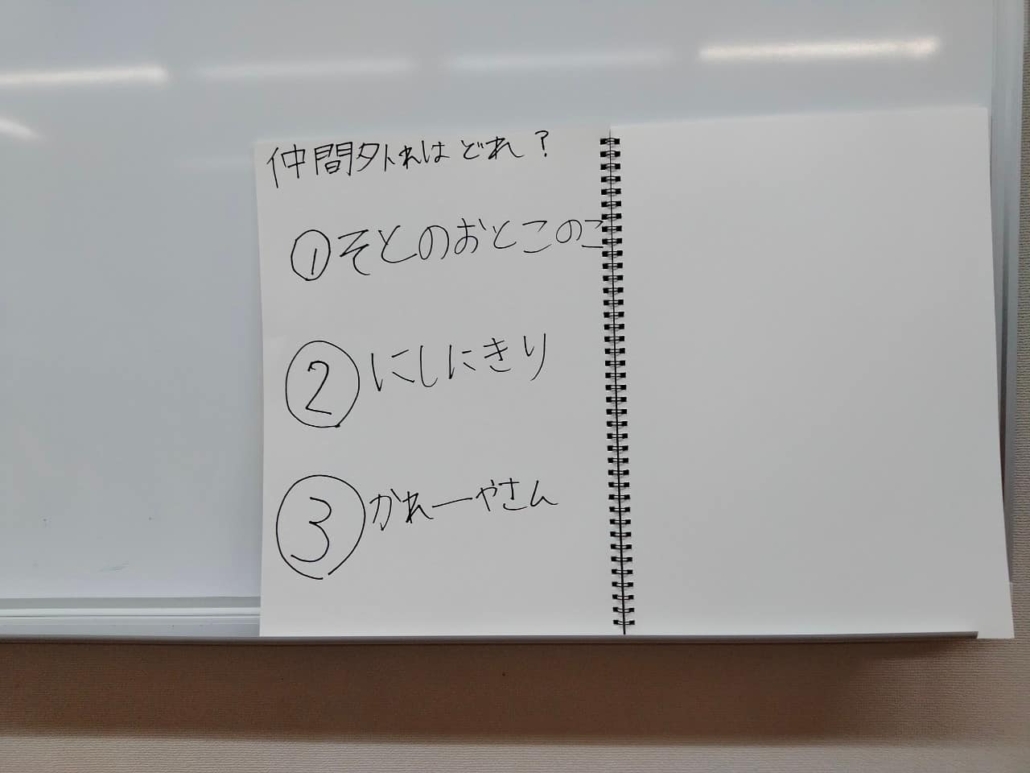 仲間外れはどれ？
① そとのおとこのこ
② にしにきり
③ かれーやさん